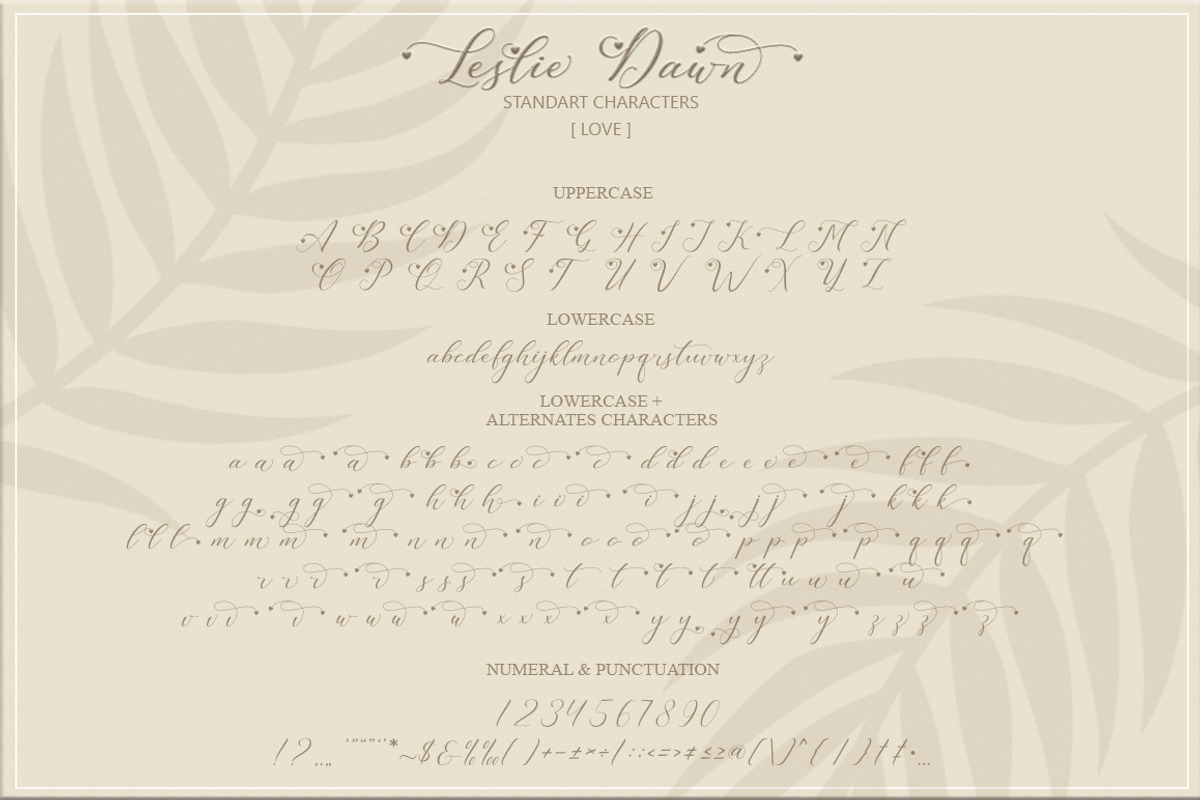 Leslie Dawn
STANDART CHARACTERS
[ LOVE ]
UPPERCASE
A B C D E F G H I J K L M N
O P Q R S T U V W X Y Z
LOWERCASE
abcdefghijklmnopqrstuvwxyz
LOWERCASE +
ALTERNATES CHARACTERS
a a a a b b b c c c c d d d e e e e f f f
g g g g g h h h i i i i j j j j j k k k
l l l m m m m n n n n o o o o p p p p q q q q
r r r r s s s s t t t t tt u u u u
v v v v w w w w x x x x y y y y y z z z z
NUMERAL & PUNCTUATION
1234567890
! ? . , … ' " “ ” ‘ ’ * ~ $ & % ‰ ( ) + − ± × ÷ / : ; < = > ≠ ≤ ≥ @ [ \ ] ^ { | } † ‡ • …